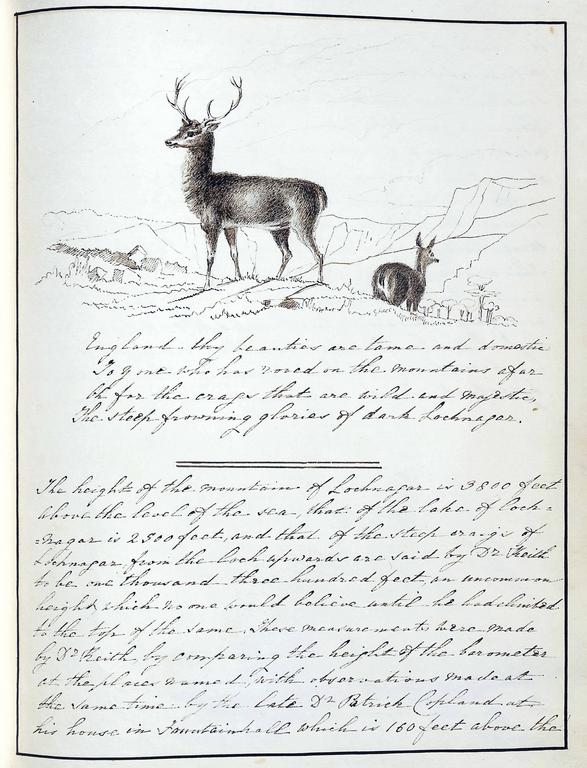 England thy beauties are tame and domestic
To one who has roved on the mountains afar
Oh for the crags that are wild and majestic,
The steep frowning glories of dark Lochnagar.
The height of the mountain of Lochnagar is 3800 feet
above the level of the sea, that of the lake of Loch=
=nagar is 2500 feet, and that of the steep craigs of
Lochnagar from the loch upwards are said by Dr. Keith
to be one thousand three hundred feet, an uncommon
height which no one would believe until he had climbed
to the top of the same. These measurements were made
by Dr. Keith by comparing the height of the barometer
at the places named, with observations made at
the same time by the late Dr. Patrick Copland at
his house in Fountainhall which is 160 feet above the